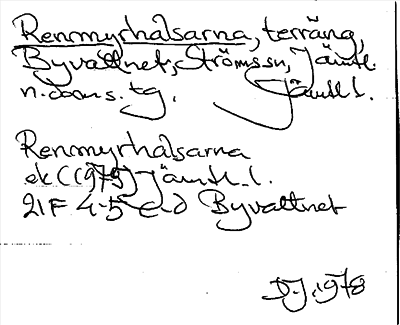 Renmyrhalsarna, terräng,
Byvattnet, Strömssn, Jämtl.
n.oom s. tg. Jämtl l.
Renmyrhalsarna
ek (1975) Jämtl. l.
21F 4-5 c-d Byvattnet
D.J. 1978